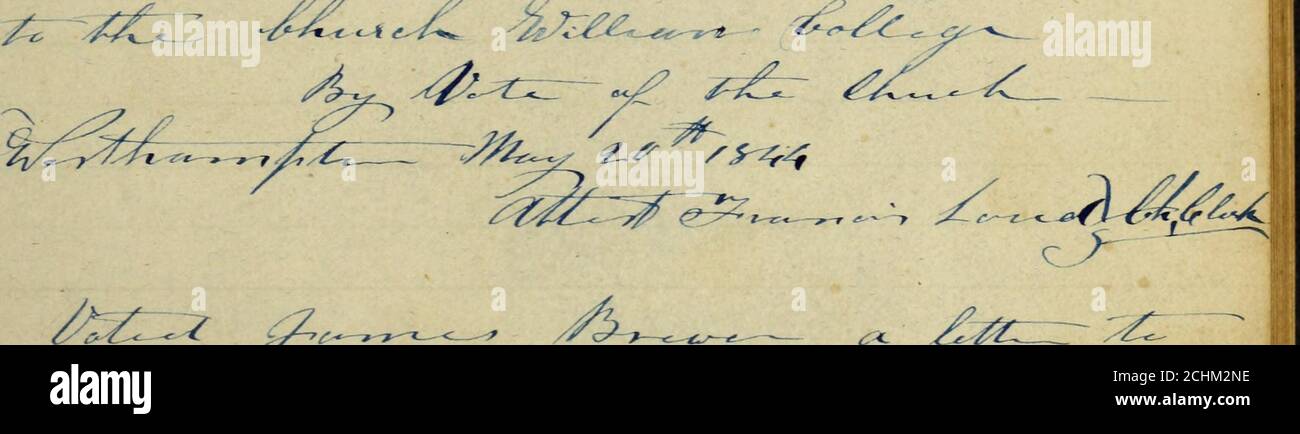 to the Church William College
By Vote of the Church —
Northampton May 20th 1844
Attest Francis Loud Ch. Clerk
Voted James Brewer a letter to
alamy
Image ID: 2CHM2NE
www.alamy.com